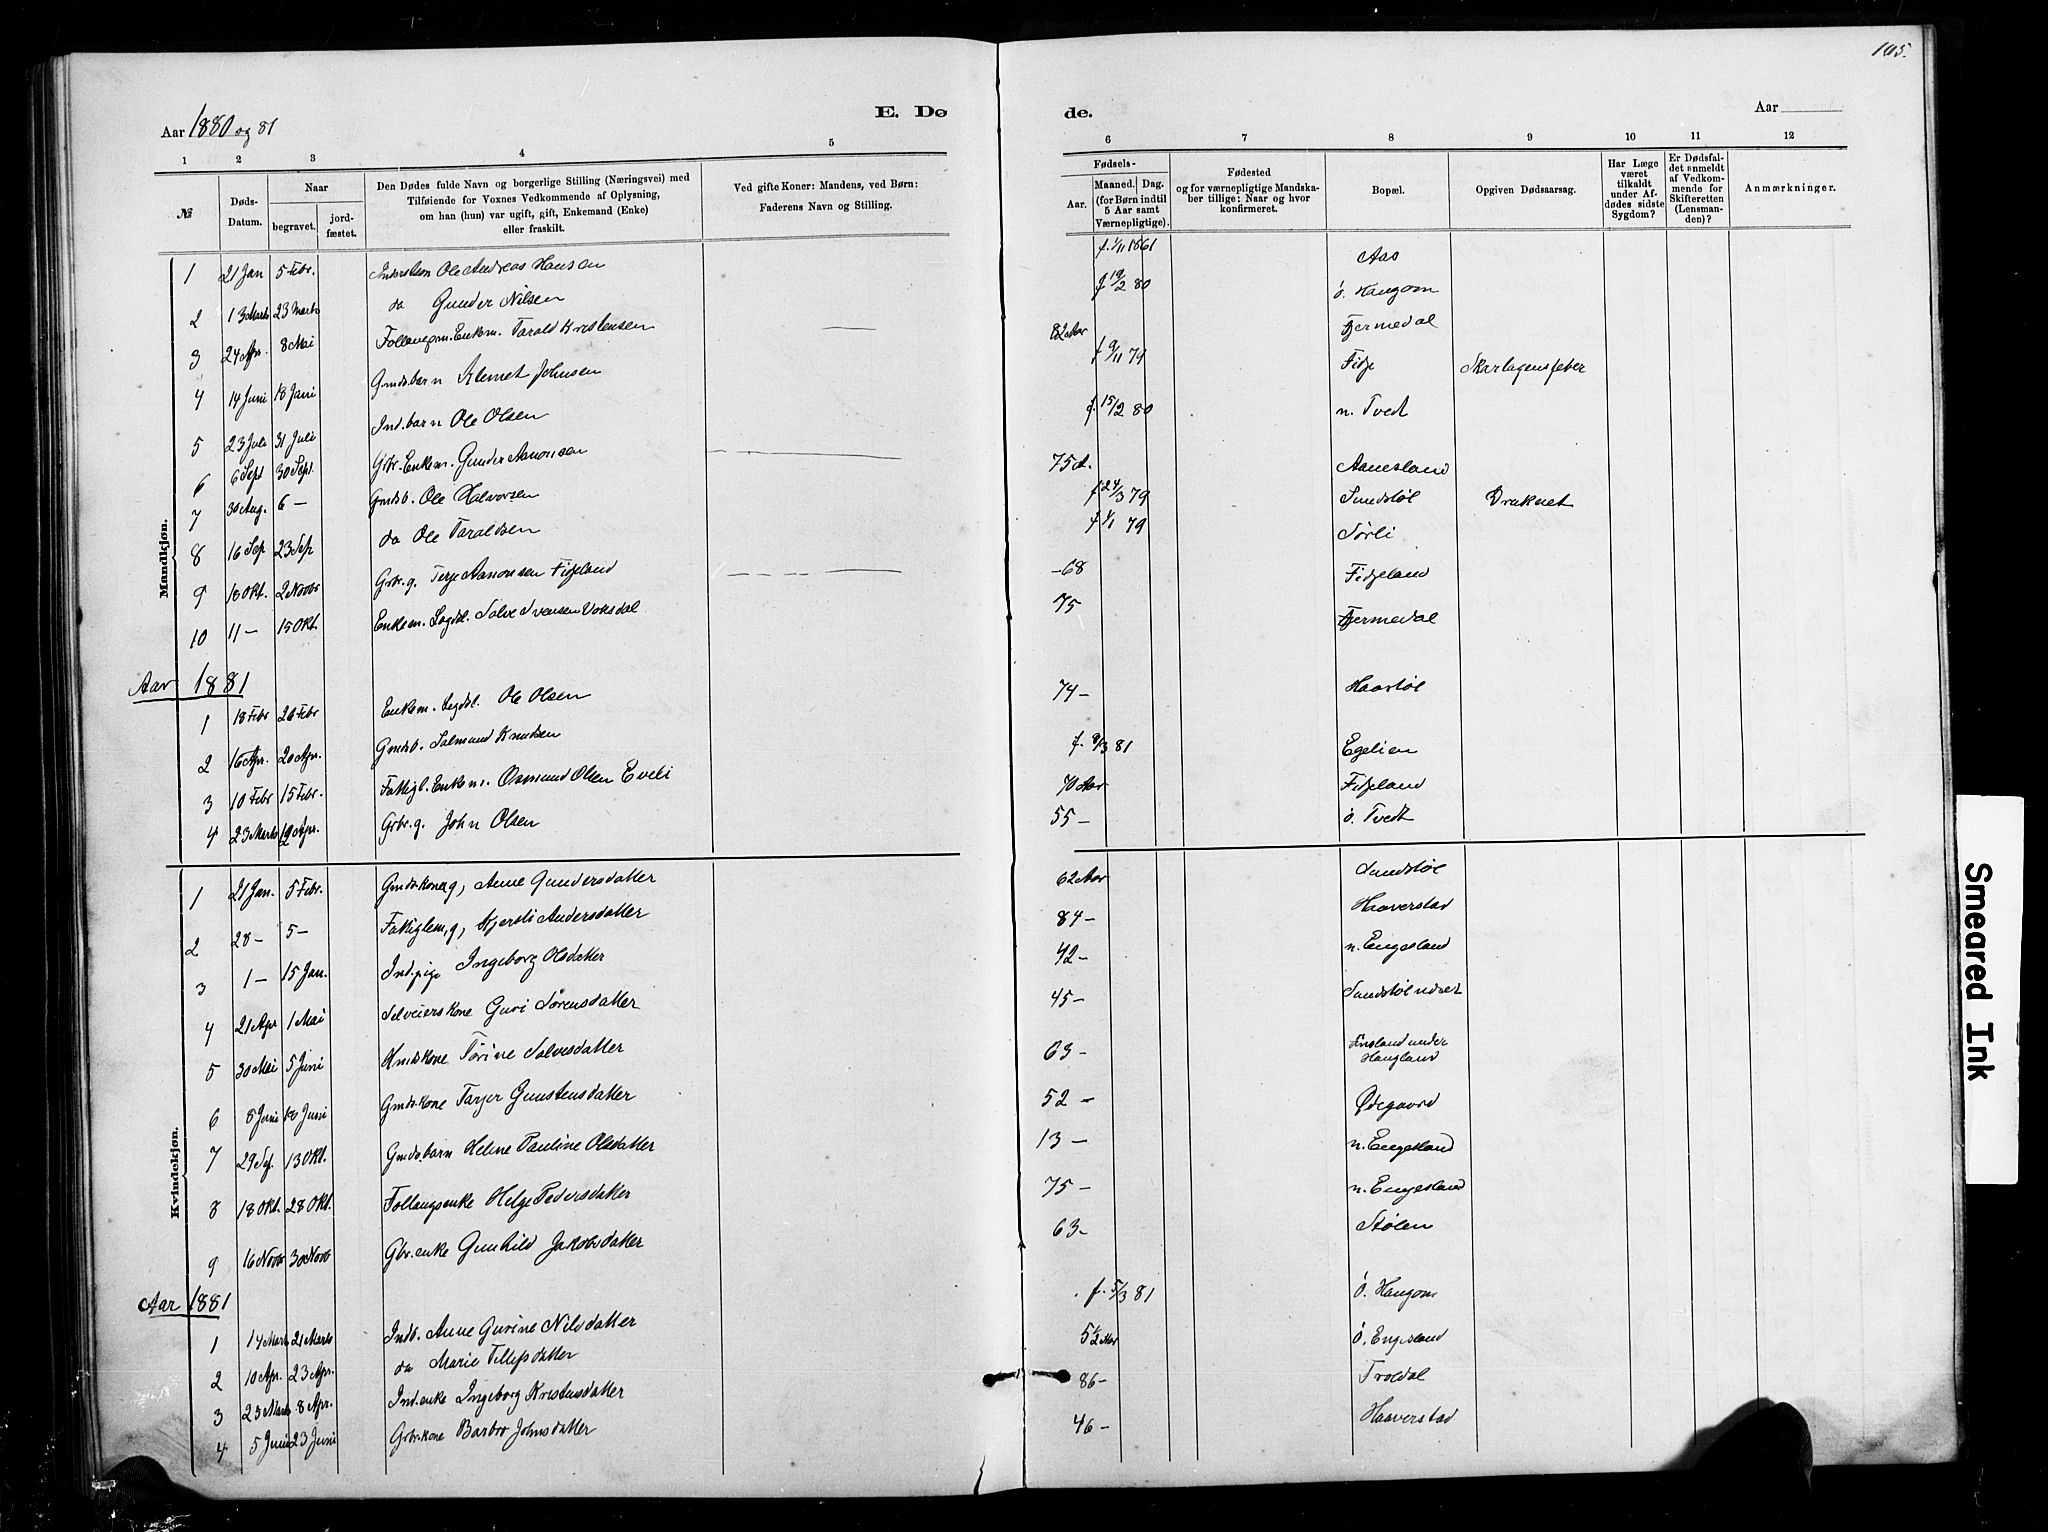 105.
Aar 1880 og 81
E. Dø
de.
Aar
1 2 3 4 5
6 7 8 9 10 11 12
№
Døds-Datum.
Naar
begravet. jord-fæstet.
Den Dødes fulde Navn og borgerlige Stilling (Næringsvei) med
Tilføiende for Voxnes Vedkommende af Oplysning,
om han (hun) var ugift, gift, Enkemand (Enke)
eller fraskilt.
Ved gifte Koner: Mandens, ved Børn:
Faderens Navn og Stilling.
Fødsels-
Aar. Maaned. Dag.
(for Børn indtil
5 Aar samt
Værnepligtige).
Fødested
og for værnepligtige Mandska-
ber tillige: Naar og hvor
konfirmeret.
Bopæl.
Opgiven Dødsaarsag.
Har Læge
været
tilkaldt
under Af-
dødes sidste
Sygdom?
Er Dødsfal-
det anmeldt
af Vedkom-
mende for
Skifteretten
(Lensman-
den)?
Anmærkninger.
Mandkjøn.
1 21 Jan 5 Febr. Ole Andreas Hansen f. 1/11 1861 Aas
2 13 Marts 23 Marts do Gunder Nilsen f 19/2 80 ö. Haugom
3 24 Apr. 8 Mai Enkem. Tarald Kristensen 82 Aar Fjermedal
4 14 Juni 18 Juni Gmds.barn Klemet Johnsen f 9/11 74 Fidje Skarlagensfeber
5 23 Juli 31 Juli Ind.barn Ole Olsen f. 15/2 80 n. Tvedt
6 6 Sept 30 Sept. Gbr. Enkem. Gunder Aanonsen 75 A. Aanesland
7 30 Aug. 6 — Gmdsb. Ole Halvorsen f 24/3 79 Sundstøl Druknet
8 16 Sep 23 Sep do Ole Taraldsen f 1/1 79 Sørli
9 18 Okt. 2 Novbr Grbr.g. Terje Aanonsen Fidjeland -68 Fidjeland
10 11 — 15 Okt. Enkem. Lægdsl. Salve Svensen Voksdal 75 Fjermedal
Aar 1881
1 18 Febr 26 Febr Enkem. Legdsl. Ole Olsen 74 — Haastøl
2 16 Apr. 20 Apr. Gmdsb. Salmund Knudsen f. 9/3 81 Egelien
3 10 Febr 15 Febr. Fattigl. Enkem. Osmund Olsen Eveli 70 Aar Fidjeland
4 23 Marts 12 Apr. Grbr.g. John Olsen 55 — ö. Tvedt
Kvindekjøn.
1 21 Jan. 5 Febr. Gmdskone g, Anne Gundersdatter 62 Aar Sundstøl
2 28 — 5 — Fattiglem, g, Kjersti Andersdatter 84 — Haaverstad
3 1 — 15 Jan. Ind.pige Ingeborg Olsdatter 42 — n. Engesland
4 21 Apr 1 Mai Selveierskone Guri Sørensdatter 45 — Sundstøl
5 30 Mai 5 Juni Hmdskone Tørine Salvesdatter 63 — Finsland under
Haugland
6 8 Juni 18 Juni Gmdskone Tarjer Gunstensdatter 52 — Ødegaard
7 29 Sep. 13 Okt. Gmds.barn Heline Pauline Olsdatter 13 — n. Engesland
8 18 Okt. 28 Okt. Follaugsenke Helge Pedersdatter 75 — n. Engesland
9 16 Novbr 30 Novbr Gbr.enke Gunhild Jakobsdatter 63 — Stølen
Aar 1881
1 14 Marts 21 Marts Indb. Anne Gurine Nilsdatter f. 5/3 81 ö. Haugom
2 10 Apr. 23 Apr. do Marie Tellefsdatter 5 1/2 Aar ö. Engesland
3 23 Marts 8 Apr. Ind.enke Ingeborg Kristensdatter 86 — Troldal
4 5 Juni 23 Juni Grbr.kone Barbro Johnsdatter 46 — Haaverstad
Smeared Ink